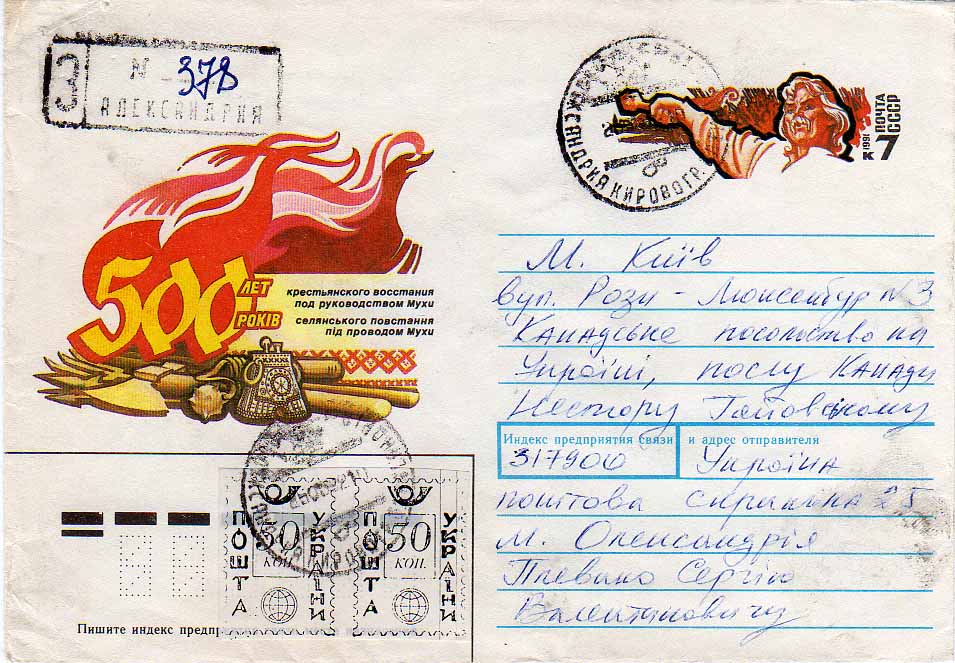 З № 378
АЛЕКСАНДРИЯ
1991
ПОЧТА
СССР
К 7
КИРОВОГР.
500 ЛЕТ
РОКІВ
крестьянского восстания
под руководством Мухи
селянського повстання
під проводом Мухи
м. Київ
вул. Рози-Люксембург №3
Канадське посольство на
Україні, послу Канади
Нестору Гайовському
Индекс предприятия связи и адрес отправителя
317900 Україна
поштова скринька 25
м. Олександрія
Плевако Сергію
Валентиновичу
ПОШТА 50 КОП. УКРАЇНИ
ПОШТА 50 КОП. УКРАЇНИ
Пишите индекс предпр